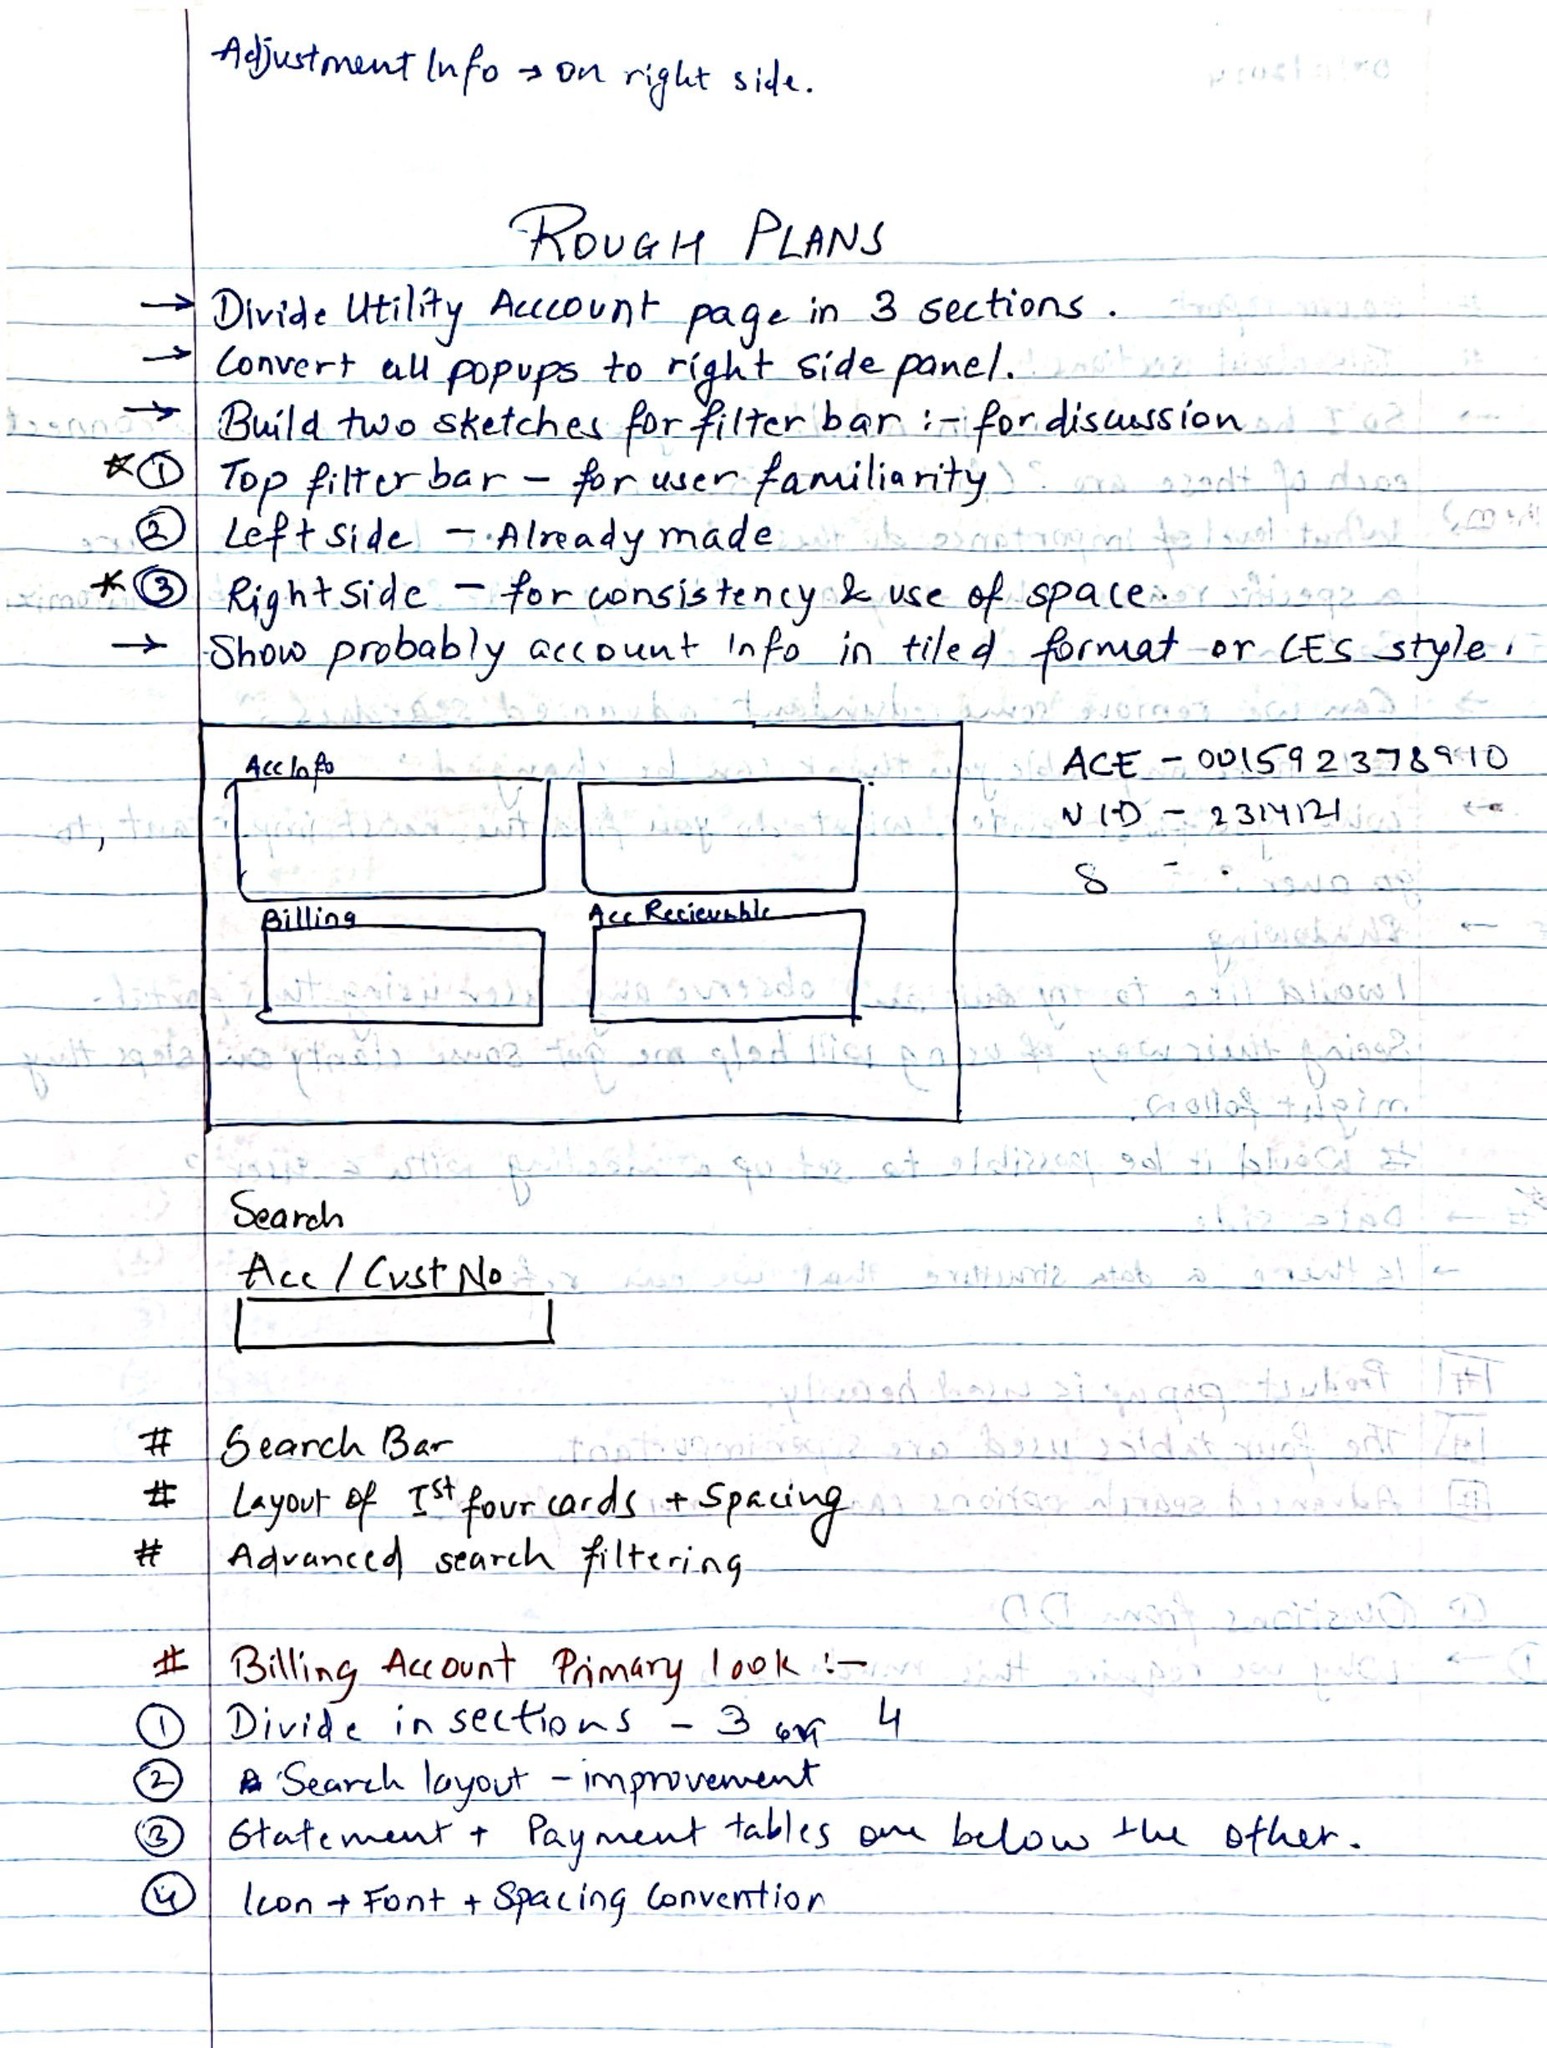 Adjustment Info → on right side.
ROUGH PLANS
→ Divide Utility Acccount page in 3 sections.
→ Convert all popups to right side panel.
→ Build two sketches for filter bar :- for discussion
☆ ① Top filter bar - for user familiarity
② Left side - Already made
★ ③ Right side - for consistency & use of space.
→ Show probably account Info in tiled format or CES style.
Acc Info
ACE - 001592378910
N I D - 2314121
8 - .
Billing Acc Recievable
Search
Acc / Cust No
# Search Bar
# Layout of Ist four cards + Spacing
# Advanced search filtering
# Billing Account Primary look :-
① Divide in sections - 3 or 4
② Search layout - improvement
③ Statement + Payment tables one below the other.
④ Icon + Font + Spacing Convention